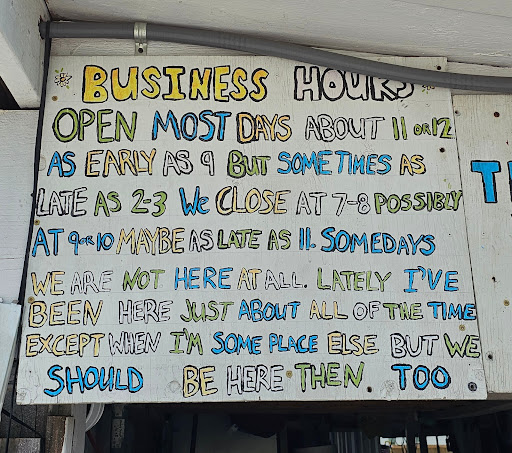 BUSINESS HOURS
OPEN MOST DAYS ABOUT 11 OR 12
AS EARLY AS 9 BUT SOMETIMES AS
LATE AS 2-3 We CLOSE AT 7-8 POSSIBLY
AT 9 OR 10 MAYBE AS LATE AS 11. SOMEDAYS
WE ARE NOT HERE AT ALL. LATELY I'VE
BEEN HERE JUST ABOUT ALL OF THE TIME
EXCEPT WHEN I'M SOME PLACE ELSE BUT WE
SHOULD BE HERE THEN TOO